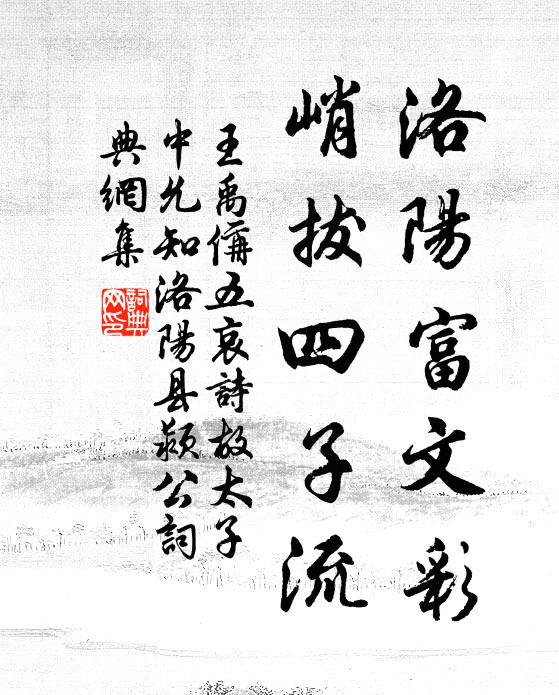 洛陽富文彩
峭拔四子流
王禹偁五哀詩故太子
中允知洛陽县颍公詞
典網集
詞典网印